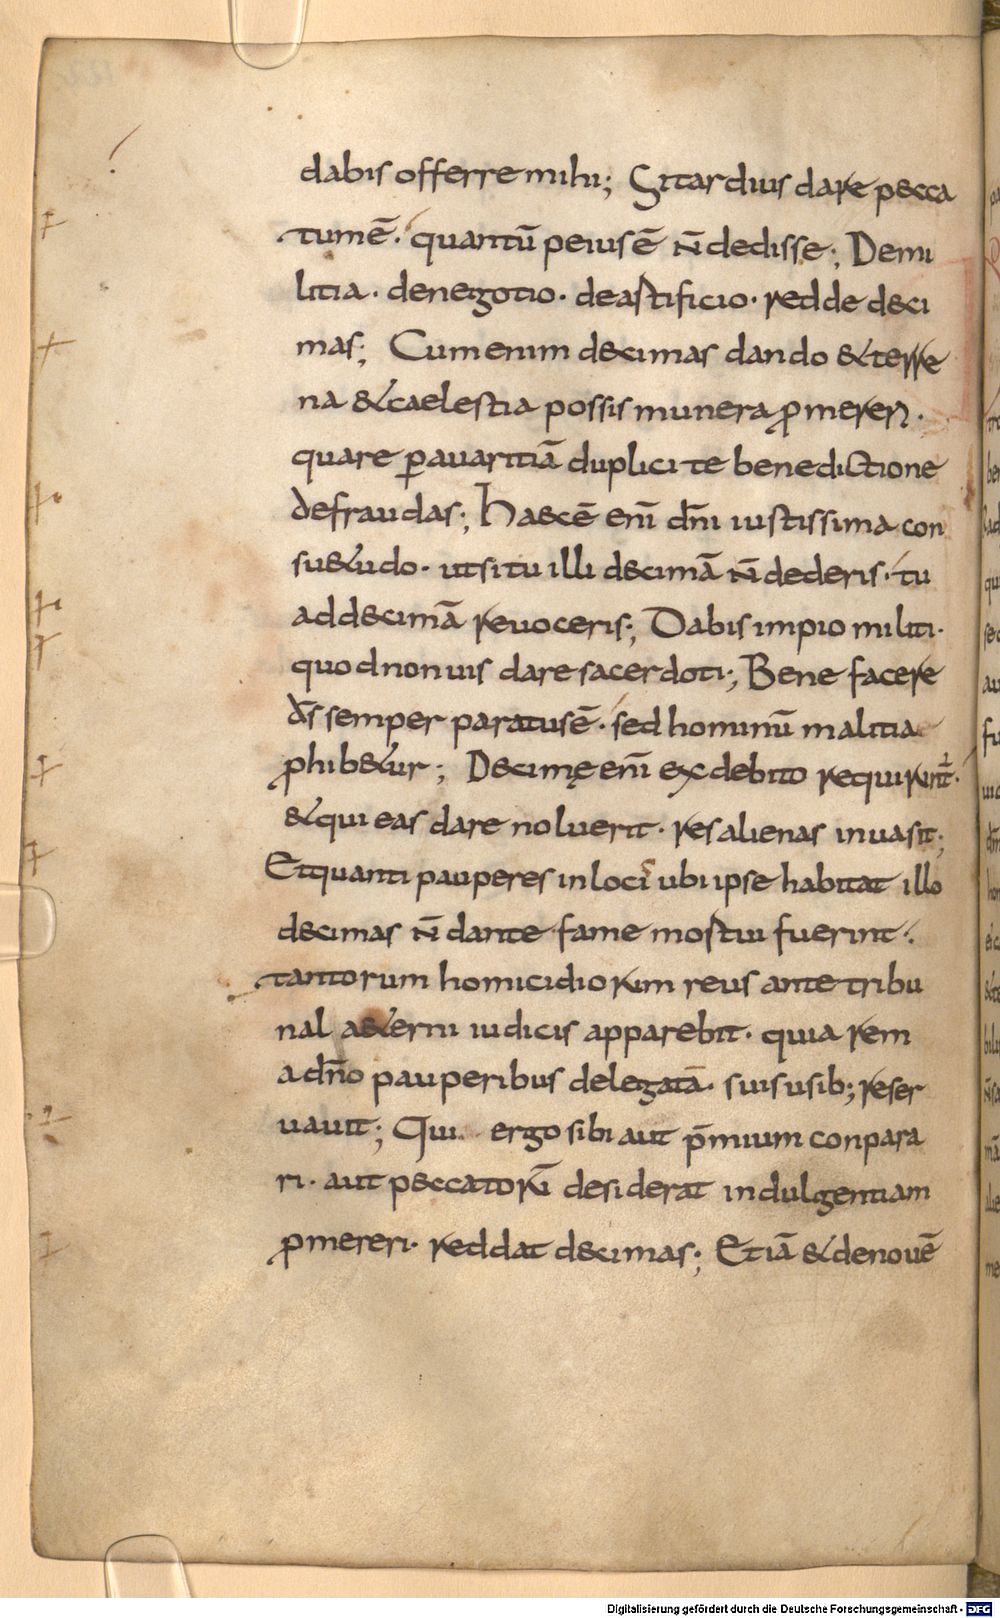 dabis offerre mihi; Si tardius dare pecca
tum ē· quantū peius ē n̄ dedisse; De mi
litia· de negotio· de astificio· redde deci
mas; Cum enim decimas dando & terre
na & caelestia possis munera ꝓmereri·
quare ꝑ auaritiā duplici te benedictione
defraudas; Haec ē eni̅ dn̅i iustissima con
su&udo· ut si tu illi decimā n̄ dederis· tu
ad decimā reuoceris; Dabis impio militi·
quod non uis dare sacerdoti; Bene facere
ds̅ semper paratus ē· sed hominū malitia
ꝓhib&ur; Decimę eni̅ ex debito requirunt̅·
& qui eas dare noluerit· res alienas inuasit;
Et quanti pauperes in loci ubi ipse habitat illo
decimas n̄ dante fame mostui fuerint·
tantorum homicidiorum reus ante tribu
nal a&erni iudicis apparebit· quia rem
a dn̅o pauperibus delegatā· suis usib; reser
uauit; Qui ergo sibi aut p̄mium conpara
ri· aut peccatorū desiderat indulgentiam
ꝓmereri· reddat decimas; Etiā & de nouē
Digitalisierung gefördert durch die Deutsche Forschungsgemeinschaft - DFG